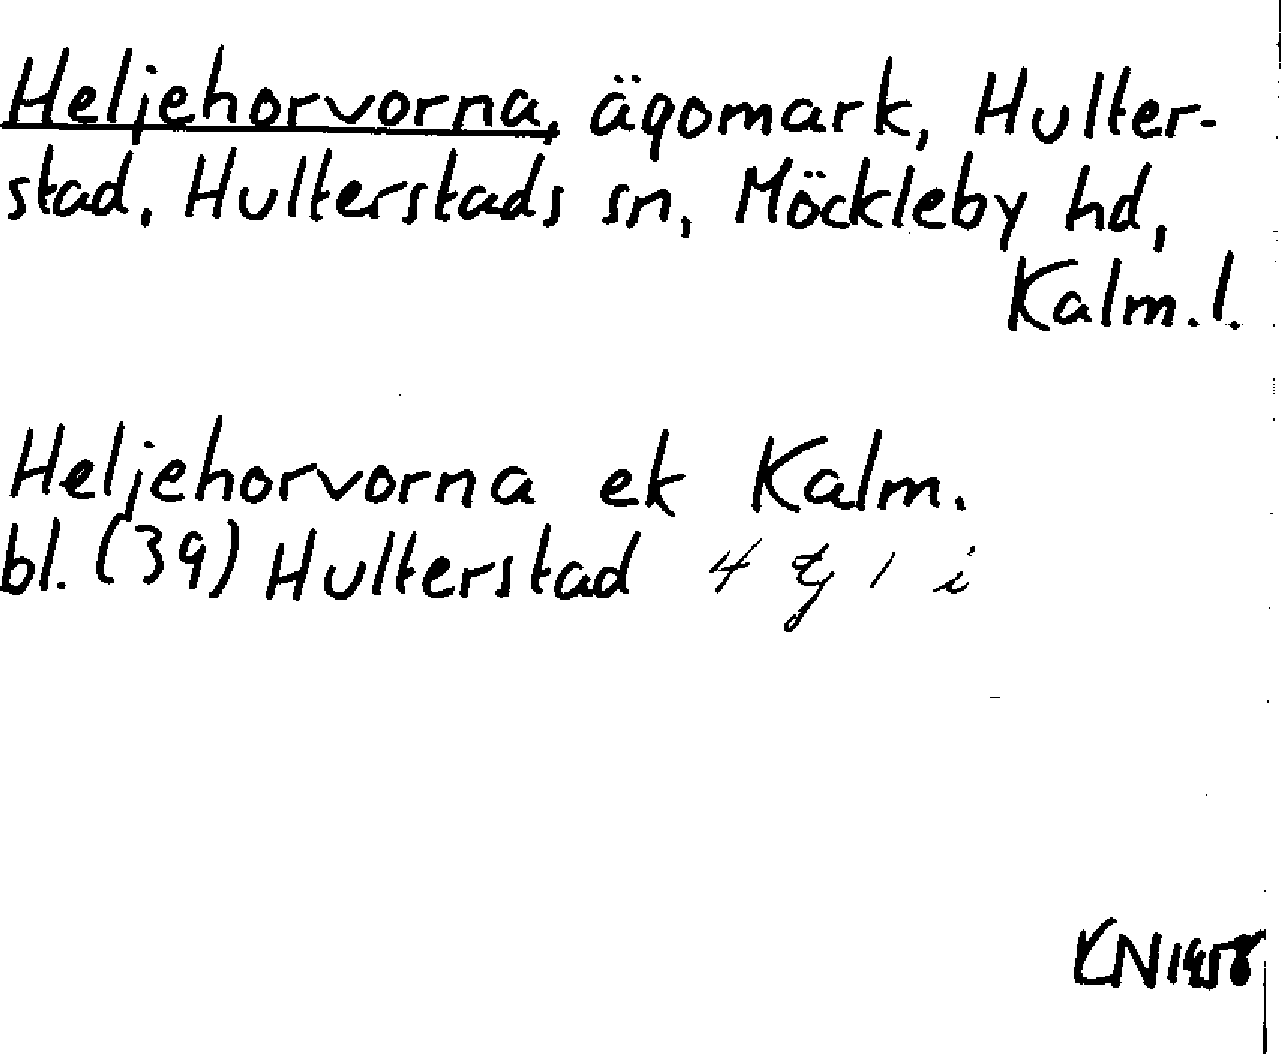 Heljehorvorna, ägomark, Hulter-
stad, Hulterstads sn, Möckleby hd,
Kalm.l.
Heljehorvorna ek Kalm.
bl. (39) Hulterstad 4 g 1 i
KN 1958